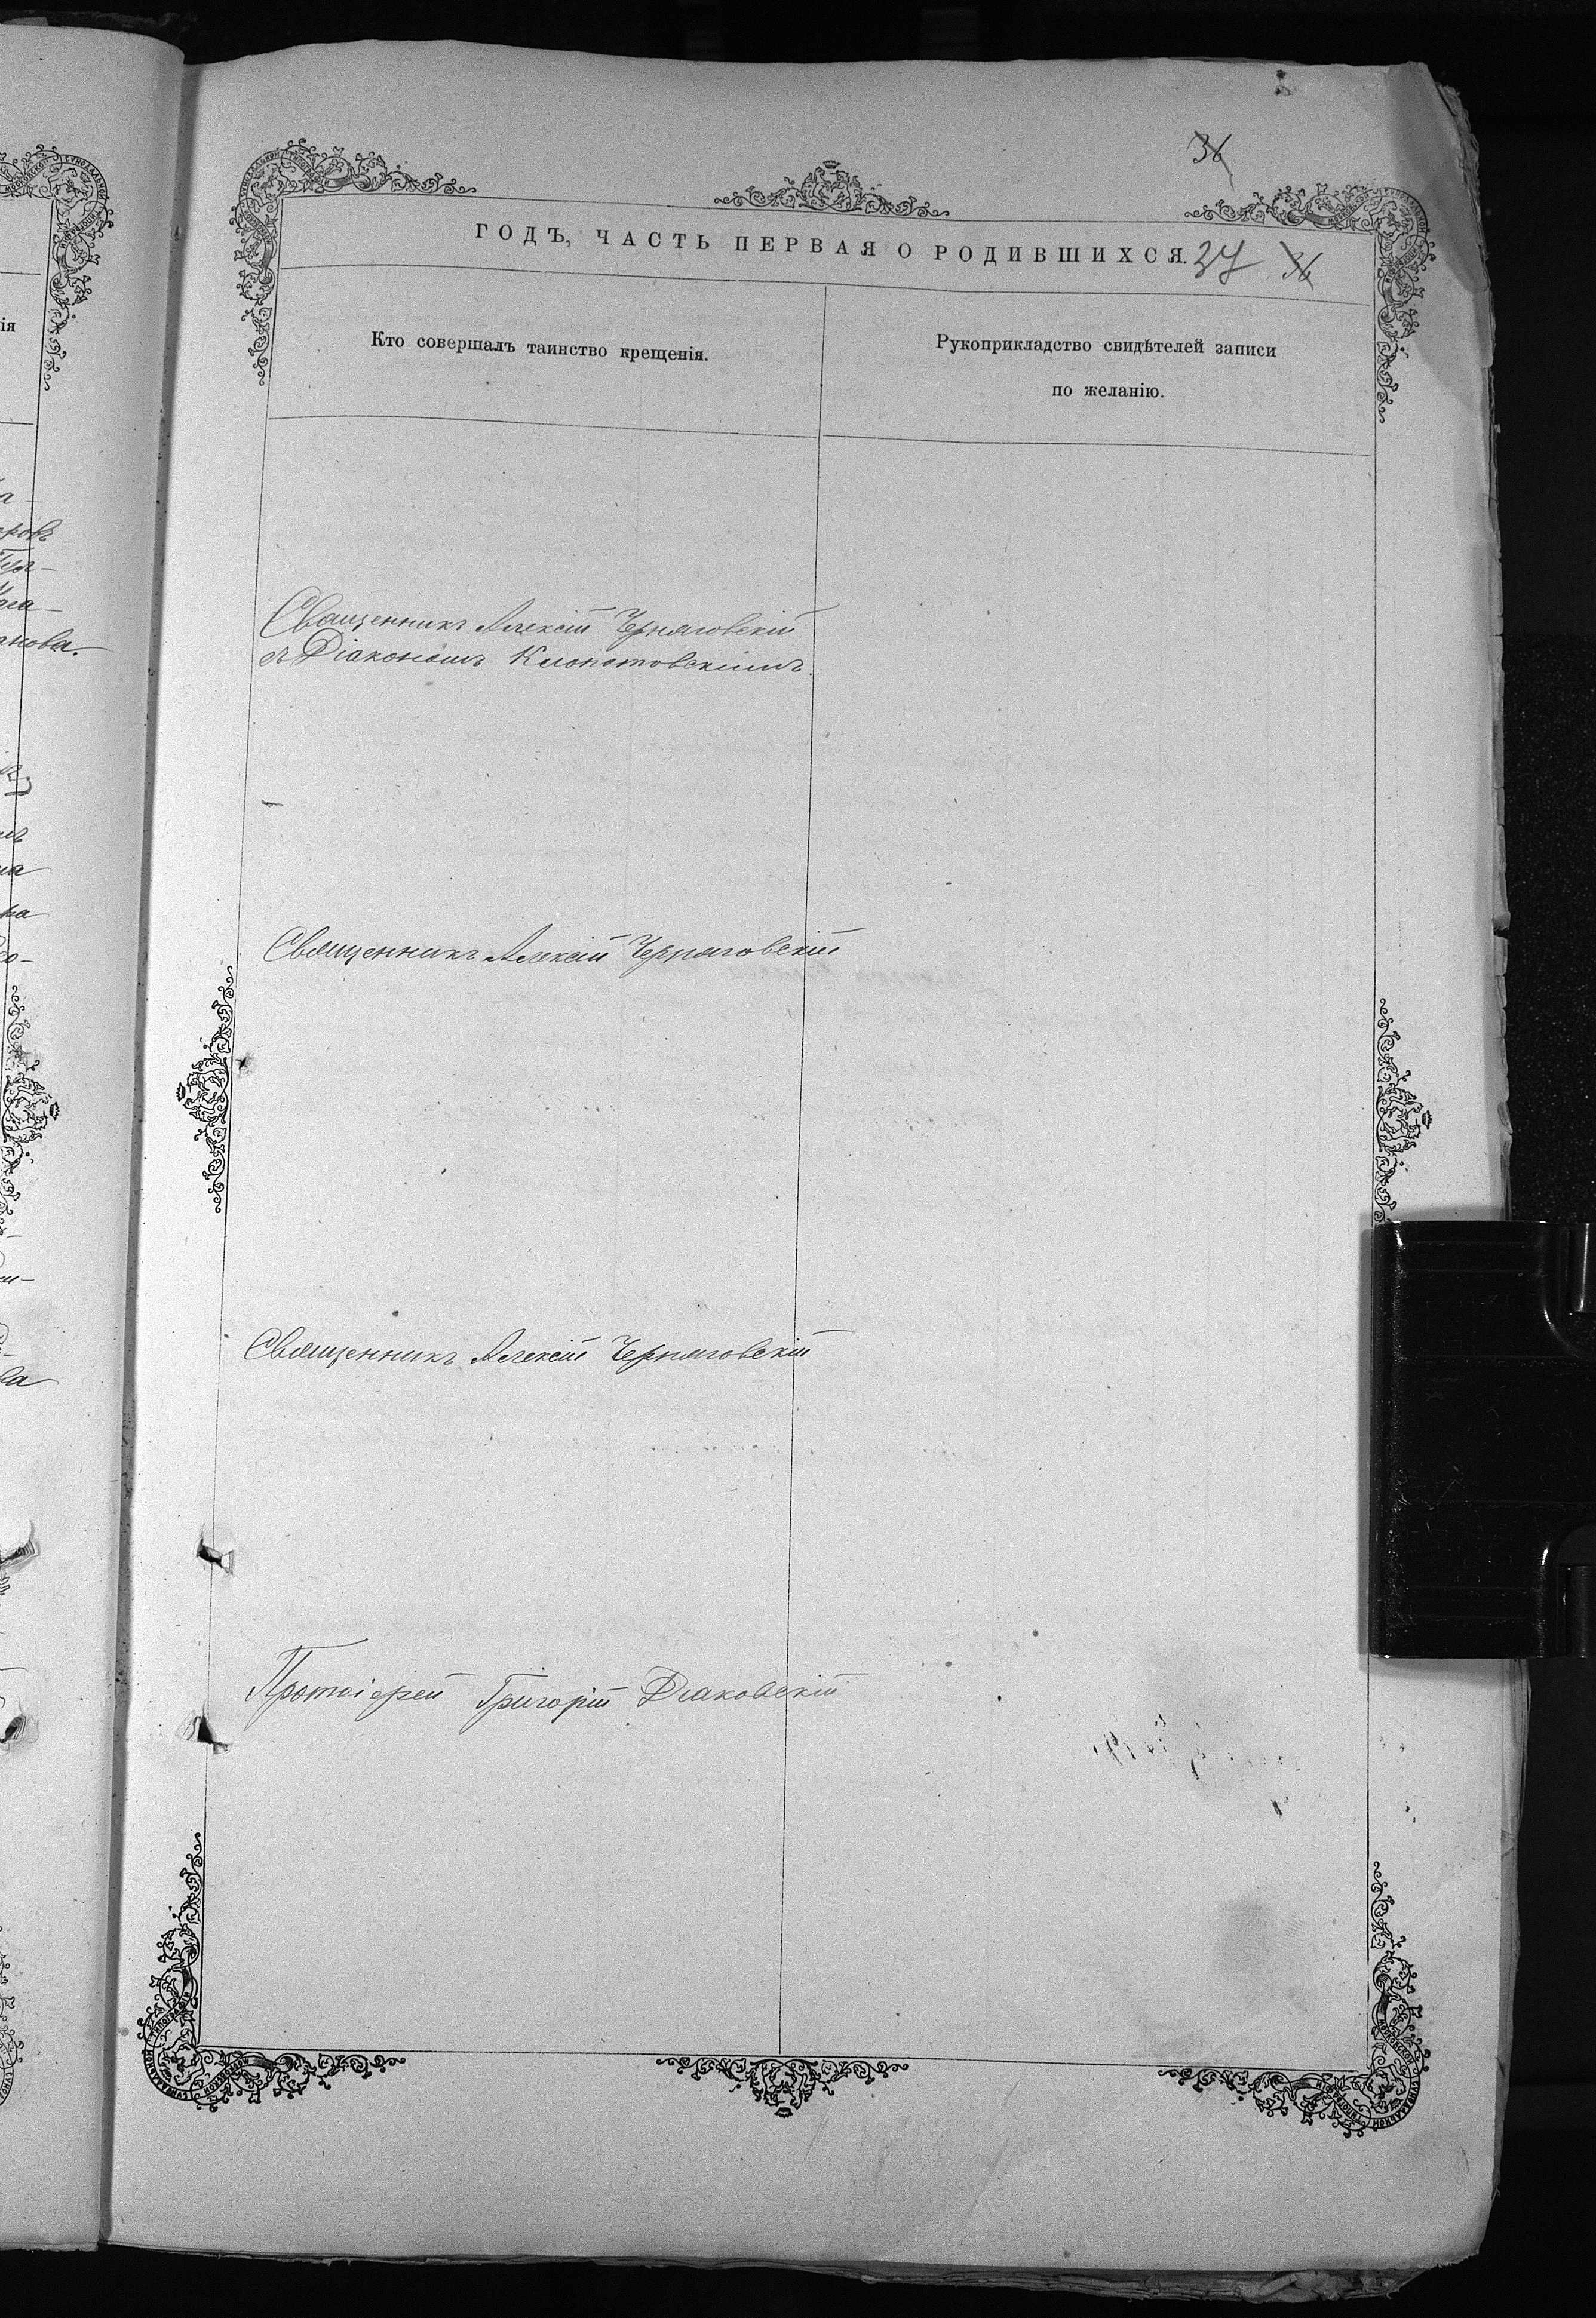 36
ГОДЪ, ЧАСТЬ ПЕРВАЯ О РОДИВШИХСЯ. 37 36
Кто совершалъ таинство крещенія.
Рукоприкладство свидѣтелей записи
по желанію.
Священникъ Алексій Черняговскій
съ Діакономъ Клопотовскимъ.
Священникъ Алексій Черняговскій
Священникъ Алексій Черняговскій
Протоіерей Григорій Діаковскій